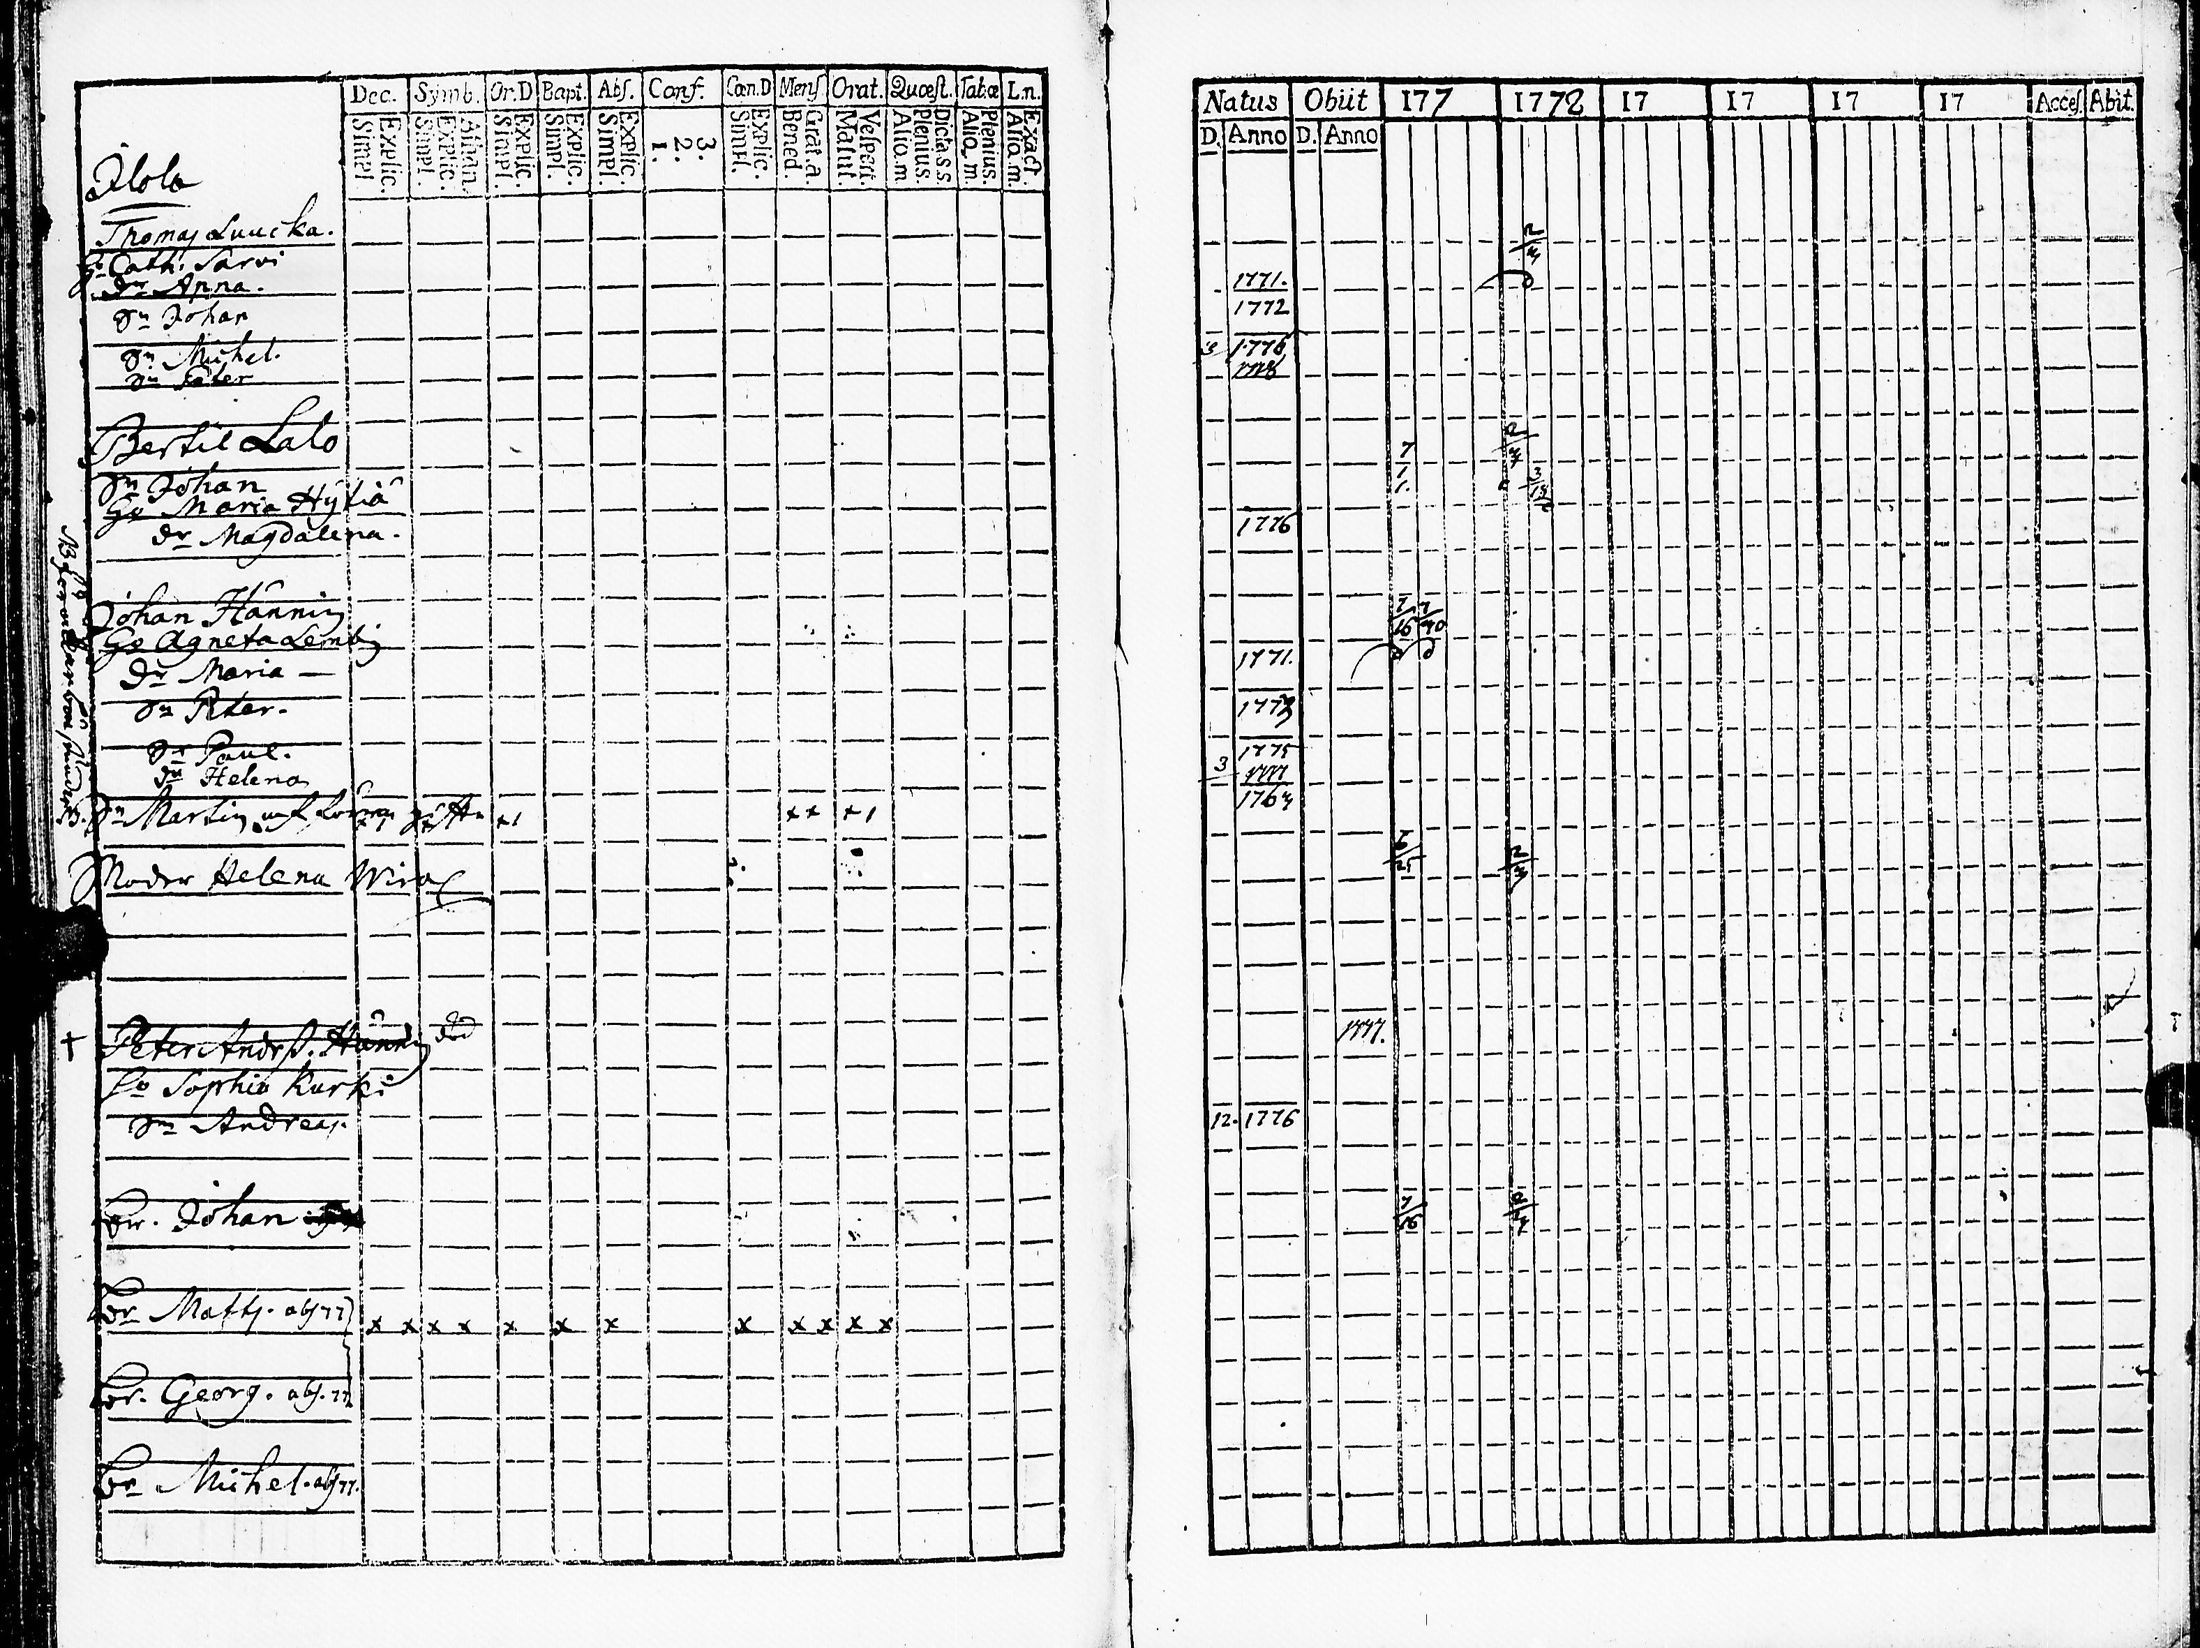 Dec. Symb. Or.D Bapt. Abs. Conf. Cœn.D Mens Orat. Quæst. Tabæ L.n.
Simpl. Explic. Simpl. Explic. Athan. Simpl. Explic. Simpl. Explic. Simpl. Explic. 1. 2. 3. Simpl. Explic. Bened. Grat.a. Matut. Vespert. Alio.m. Plenius. Dicta.s.s. Alio.m. Plenius. Alio.m. Exact
Ilola
Thomas Luucka.
Cath: Sarvi
dr Anna.
Sn Johan
Sn Michel.
Sn Peter
Bertil Lalo
Sn Johan
Hu Maria Hytiä
dr Magdalena.
Johan Hännin
Hu Agneta Lembi
Dr Maria —
Sn Peter.
Sn Paul.
dr Helena
Sn Martin x x x 1 x x x 1
Moder Helena Wira
† Peter Andrss. Hännin död
Sophia Kurki
Sn Andreas.
Br. Johan
Br Matts. abs 77 x x x x x x x x x x x x
Br. Georg. abs. 77
Br Michel. abs 77.
Natus Obiit 177 1778 17 17 17 17 Acces. Abit.
D. Anno D. Anno
2/4
1771.
1772
3 1776
1778
7 2/4
1
1. 3/14
1776
7/16 7/40
1771.
1773
1775
3 1777
1764
6/25 2/4
1777.
12. 1776
7/16 2/4